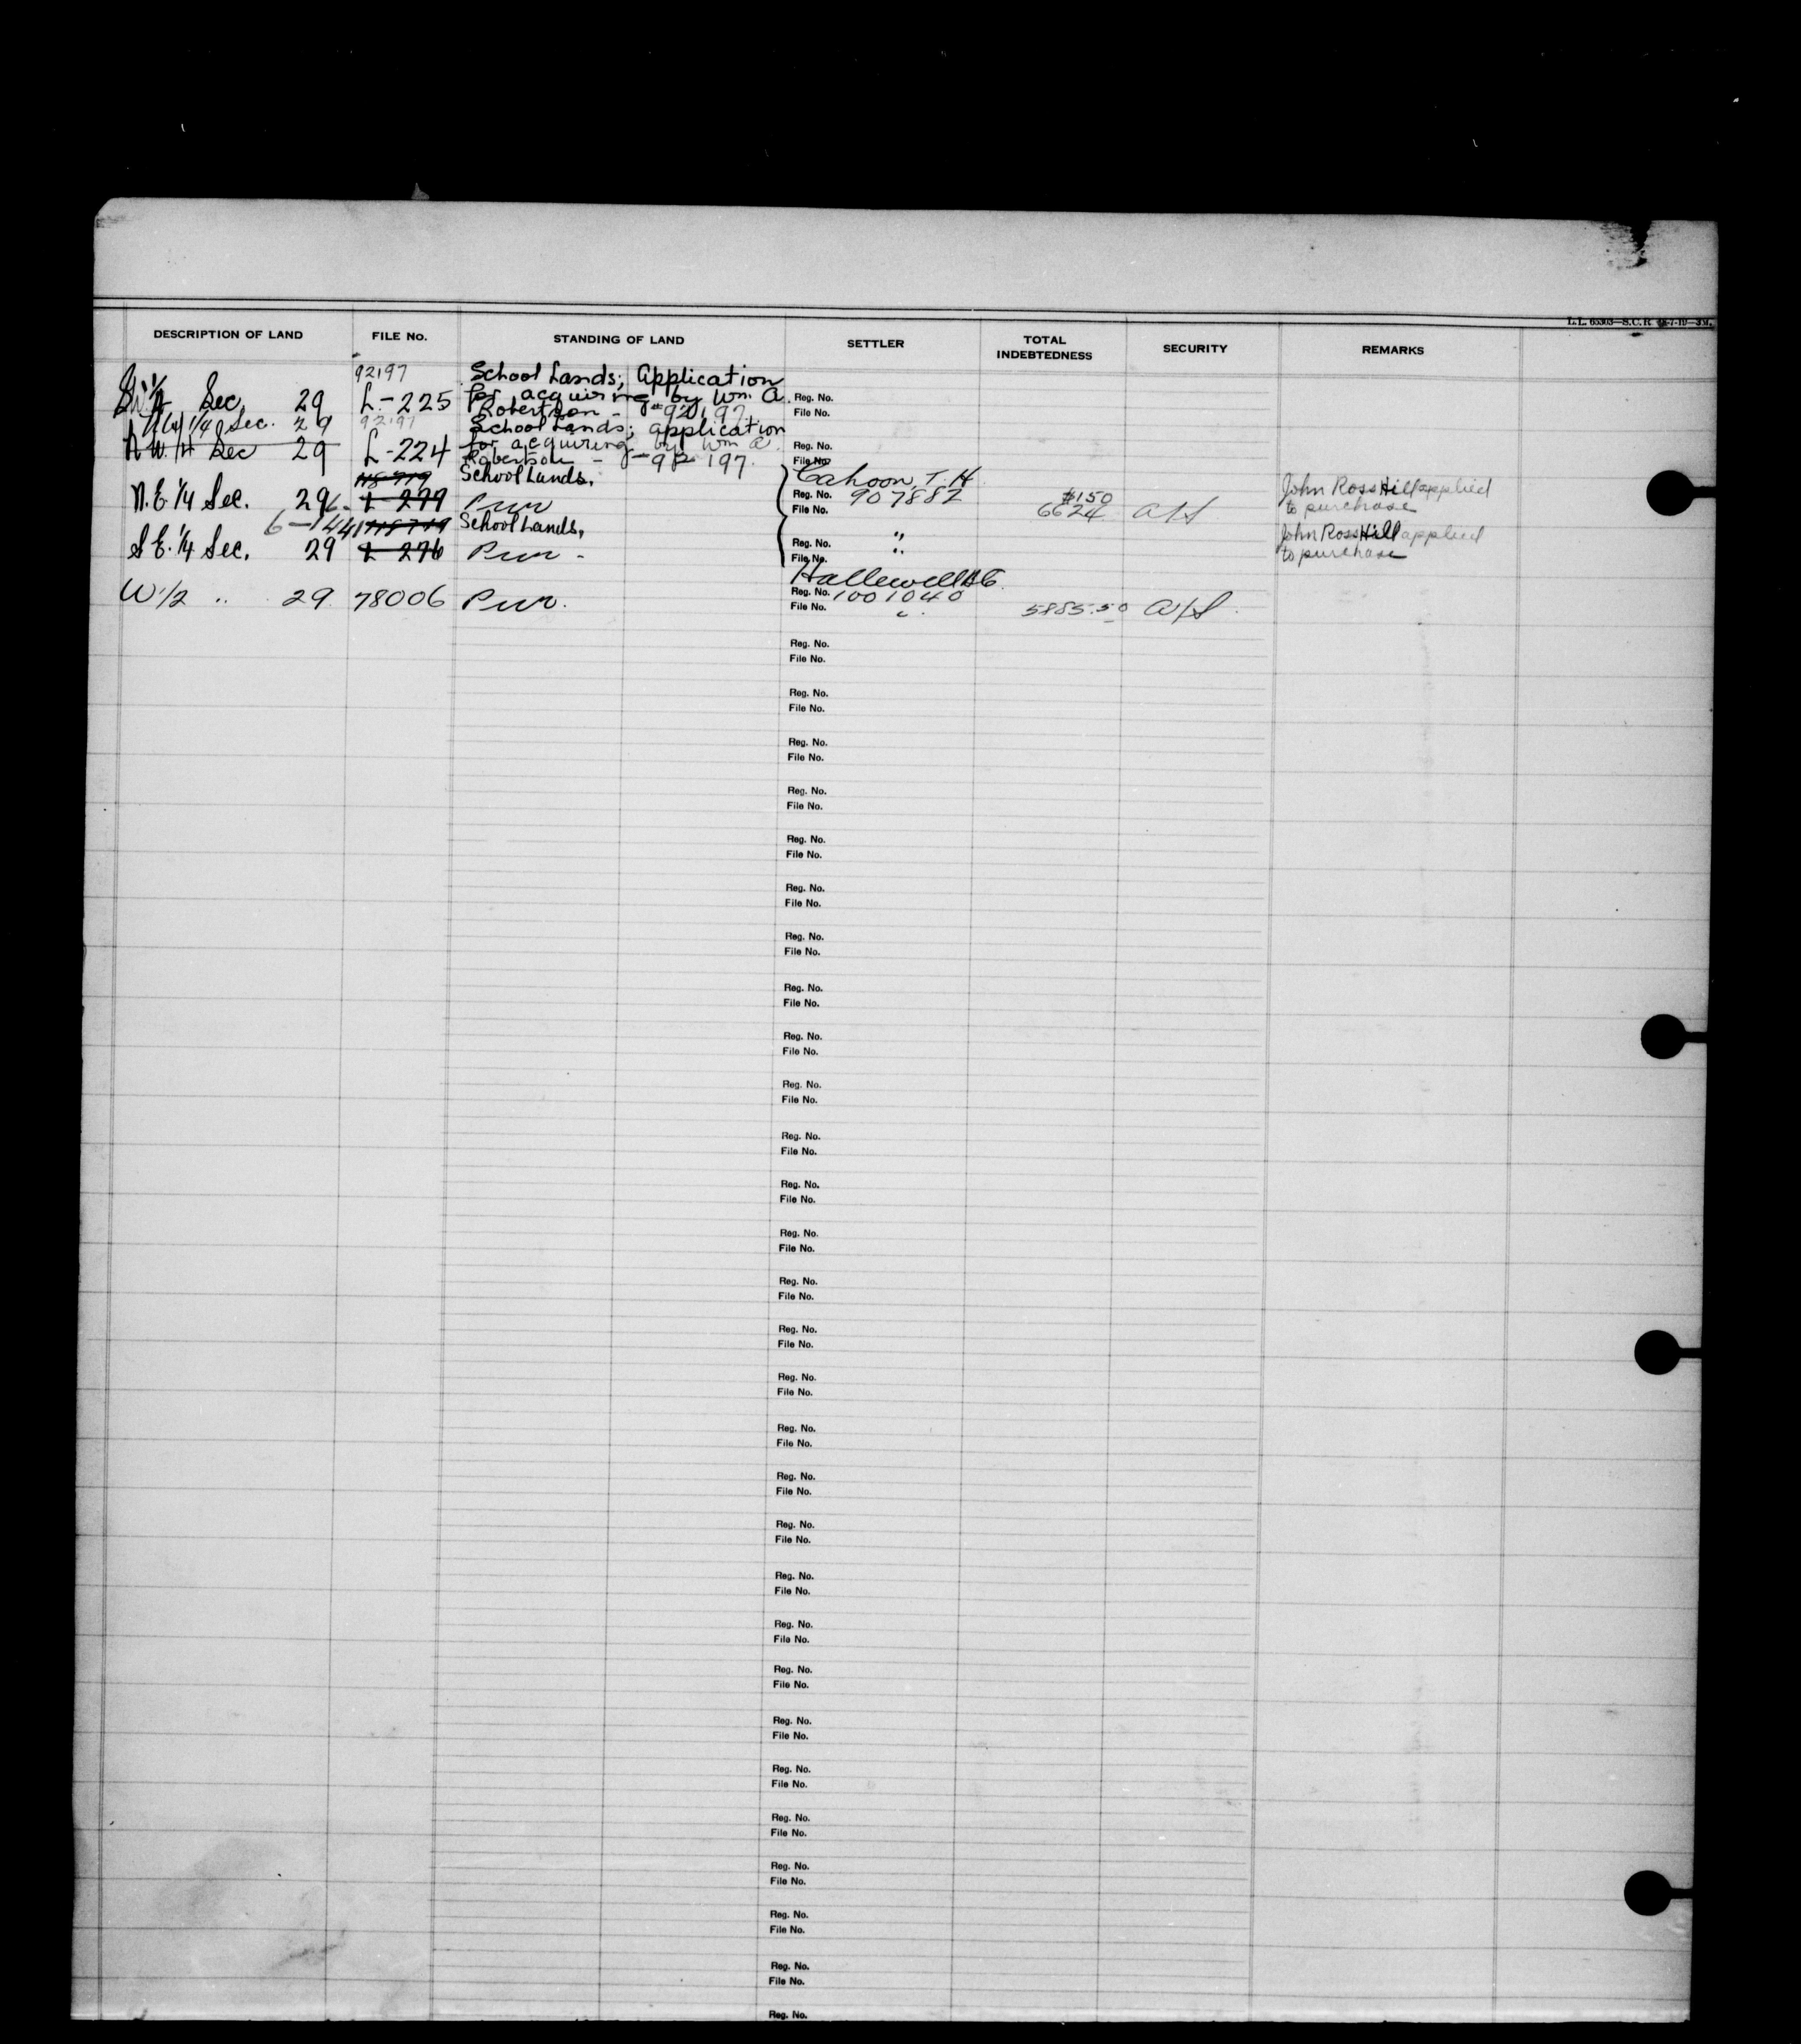 L.L. 65303—S.C.R. 48-7-19—3M.
DESCRIPTION OF LAND FILE No. STANDING OF LAND SETTLER TOTAL INDEBTEDNESS SECURITY REMARKS
92197 School Lands; Application
Sec 29 L-225 for acquiring by Wm. A. Reg. No.
Robertson - 92197 File No.
N.W. 1/4 Sec. 29 92197 School Lands; application
N.W. 1/4 Sec 29 L-224 for acquiring by Wm A Reg. No.
Robertson - 92197. File No.
School Lands, Cahoon, T. H.
N.E. 1/4 Sec. 29 L-277 Pur Reg. No. 907882 $150 John Ross Hill applied
File No. 6624 A/S to purchase
6-1441 School Lands,
S.E. 1/4 Sec. 29 L-276 Pur - Reg. No. " John Ross Hill applied
File No. " to purchase
Hallewell
W 1/2 " 29 78006 Pur. Reg. No. 1001040
File No. " 5885.50 A/S.
Reg. No.
File No.
Reg. No.
File No.
Reg. No.
File No.
Reg. No.
File No.
Reg. No.
File No.
Reg. No.
File No.
Reg. No.
File No.
Reg. No.
File No.
Reg. No.
File No.
Reg. No.
File No.
Reg. No.
File No.
Reg. No.
File No.
Reg. No.
File No.
Reg. No.
File No.
Reg. No.
File No.
Reg. No.
File No.
Reg. No.
File No.
Reg. No.
File No.
Reg. No.
File No.
Reg. No.
File No.
Reg. No.
File No.
Reg. No.
File No.
Reg. No.
File No.
Reg. No.
File No.
Reg. No.
File No.
Reg. No.
File No.
Reg. No.
File No.
Reg. No.
File No.
Reg. No.